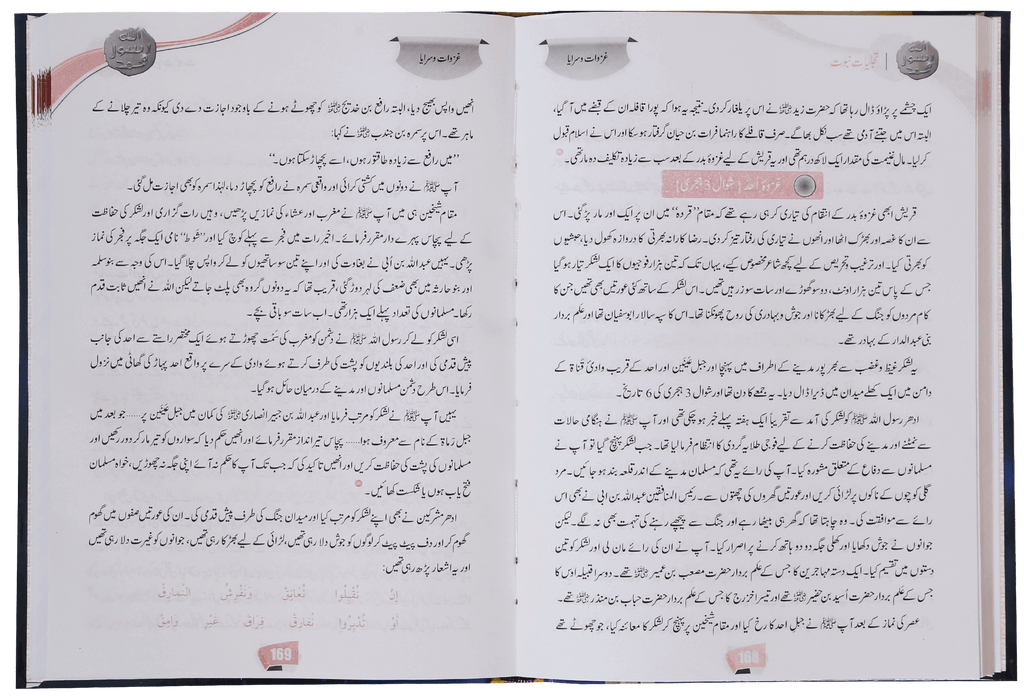 تجلیات نبوت
غزوات و سرایا
ایک چشمے پر پڑاؤ ڈال رہا تھا کہ حضرت زید رضی اللہ عنہ نے اس پر یلغار کردی۔ نتیجہ یہ ہوا کہ پورا قافلہ ان کے قبضے میں آ گیا،
البتہ اس میں جتنے آدمی تھے سب نکل بھاگے۔ صرف قافلے کا راہنما فرات بن حیان گرفتار ہوسکا اور اس نے اسلام قبول
کرلیا۔ مال غنیمت کی مقدار ایک لاکھ درہم تھی اور یہ قریش کے لیے غزوۂ بدر کے بعد سب سے زیادہ تکلیف دہ مار تھی۔
غزوۂ اُحد (شوال 3 ہجری)
قریش ابھی غزوۂ بدر کے انتقام کی تیاری کر ہی رہے تھے کہ مقام ”قردہ“ میں ان پر ایک اور مار پڑ گئی۔ اس
سے ان کا غصہ اور بھڑک اٹھا اور انھوں نے تیاری کی رفتار تیز کردی۔ رضا کارانہ بھرتی کا دروازہ کھول دیا، حبشیوں
کو بھرتی کیا۔ اور ترغیب و تحریص کے لیے کچھ شاعر مخصوص کیے، یہاں تک کہ تین ہزار فوجیوں کا ایک لشکر تیار ہو گیا
جس کے پاس تین ہزار اونٹ، دو سو گھوڑے اور سات سو زرہیں تھیں۔ اس لشکر کے ساتھ کئی عورتیں بھی تھیں جن کا
کام مردوں کو جنگ کے لیے بھڑکانا اور جوش و بہادری کی روح پھونکنا تھا۔ اس کا سپہ سالار ابوسفیان تھا اور علم بردار
بنی عبدالدار کے بہادر تھے۔
یہ لشکر غیظ و غضب سے بھرپور مدینے کے اطراف میں پہنچا اور جبل عَینَین اور احد کے قریب وادیٔ قناۃ کے
دامن میں ایک کھلے میدان میں ڈیرا ڈال دیا۔ یہ جمعے کا دن تھا اور شوال 3 ہجری کی 6 تاریخ۔
ادھر رسول اللہ ﷺ کو لشکر کی آمد سے تقریباً ایک ہفتہ پہلے خبر ہو چکی تھی اور آپ ﷺ نے ہنگامی حالات
سے نمٹنے اور مدینے کی حفاظت کرنے کے لیے فوجی طلایہ گردی کا انتظام فرما لیا تھا۔ جب لشکر پہنچ گیا تو آپ نے
مسلمانوں سے دفاع کے متعلق مشورہ کیا۔ آپ کی رائے یہ تھی کہ مسلمان مدینے کے اندر قلعہ بند ہو جائیں۔ مرد
گلی کوچوں کے ناکوں پر لڑائی کریں اور عورتیں گھروں کی چھتوں سے۔ رئیس المنافقین عبداللہ بن ابی نے بھی اس
رائے سے موافقت کی۔ وہ چاہتا تھا کہ گھر ہی بیٹھا رہے اور جنگ سے پیچھے رہنے کی تہمت بھی نہ لگے۔ لیکن
جوانوں نے جوش دکھایا اور کھلی جگہ دو دو ہاتھ کرنے پر اصرار کیا۔ آپ نے ان کی رائے مان لی اور لشکر کو تین
دستوں میں تقسیم کیا۔ ایک دستہ مہاجرین کا جس کے علم بردار حضرت مصعب بن عمیر رضی اللہ عنہ تھے۔ دوسرا قبیلہ اوس کا
جس کے علم بردار حضرت اُسید بن حضیر رضی اللہ عنہ تھے اور تیسرا خزرج کا جس کے علم بردار حضرت حباب بن منذر رضی اللہ عنہ تھے۔
عصر کی نماز کے بعد آپ ﷺ نے جبل احد کا رخ کیا اور مقام شیخین پر پہنچ کر لشکر کا معائنہ کیا، جو چھوٹے تھے
168
غزوات و سرایا
انھیں واپس بھیج دیا، البتہ رافع بن خدیج رضی اللہ عنہ کو چھوٹے ہونے کے باوجود اجازت دے دی کیونکہ وہ تیر چلانے کے
ماہر تھے۔ اس پر سمرہ بن جندب رضی اللہ عنہ نے کہا:
”میں رافع سے زیادہ طاقتور ہوں، اسے پچھاڑ سکتا ہوں۔“
آپ ﷺ نے دونوں میں کشتی کرائی اور واقعی سمرہ نے رافع کو پچھاڑ دیا، لہٰذا سمرہ کو بھی اجازت مل گئی۔
مقام شیخین ہی میں آپ ﷺ نے مغرب اور عشاء کی نمازیں پڑھیں، وہیں رات گزاری اور لشکر کی حفاظت
کے لیے پچاس پہرے دار مقرر فرمائے۔ اخیر رات میں فجر سے پہلے کوچ کیا اور ”شوط“ نامی ایک جگہ پر فجر کی نماز
پڑھی۔ یہیں عبداللہ بن اُبی نے بغاوت کی اور اپنے تین سو ساتھیوں کو لے کر واپس چلا گیا۔ اس کی وجہ سے بنو سلمہ
اور بنو حارثہ میں بھی ضعف کی لہر دوڑ گئی، قریب تھا کہ یہ دونوں گروہ بھی پلٹ جاتے لیکن اللہ نے انھیں ثابت قدم
رکھا۔ مسلمانوں کی تعداد پہلے ایک ہزار تھی۔ اب سات سو باقی بچے۔
اسی لشکر کو لے کر رسول اللہ ﷺ نے دشمن کو مغرب کی سَمت چھوڑتے ہوئے ایک مختصر راستے سے احد کی جانب
پیش قدمی کی اور احد کی بلندیوں کو پشت کی طرف کرتے ہوئے وادی کے سرے پر واقع احد پہاڑ کی گھاٹی میں نزول
فرمایا۔ اس طرح دشمن مسلمانوں اور مدینے کے درمیان حائل ہو گیا۔
یہیں آپ ﷺ نے لشکر کو مرتب فرمایا اور عبداللہ بن جبیر انصاری رضی اللہ عنہ کی کمان میں جبل عَینَین پر..... جو بعد میں
جبل رُماۃ کے نام سے معروف ہوا...... پچاس تیر انداز مقرر فرمائے اور انھیں حکم دیا کہ سواروں کو تیر مار کر دور رکھیں اور
مسلمانوں کی پشت کی حفاظت کریں اور انھیں تاکید کی کہ جب تک آپ کا حکم نہ آئے اپنی جگہ نہ چھوڑیں، خواہ مسلمان
فتح یاب ہوں یا شکست کھائیں۔
ادھر مشرکین نے بھی اپنے لشکر کو مرتب کیا اور میدان جنگ کی طرف پیش قدمی کی۔ ان کی عورتیں صفوں میں گھوم
گھوم کر اور دف پیٹ پیٹ کر لوگوں کو جوش دلا رہی تھیں، لڑائی کے لیے بھڑکا رہی تھیں، جوانوں کو غیرت دلا رہی تھیں
اور یہ اشعار پڑھ رہی تھیں:
إِنْ تُقْبِلُوا نُعَانِقْ وَنَفْرِشِ النَّمَارِقْ
أَوْ تُدْبِرُوا نُفَارِقْ فِرَاقَ غَيْرِ وَامِقْ
169